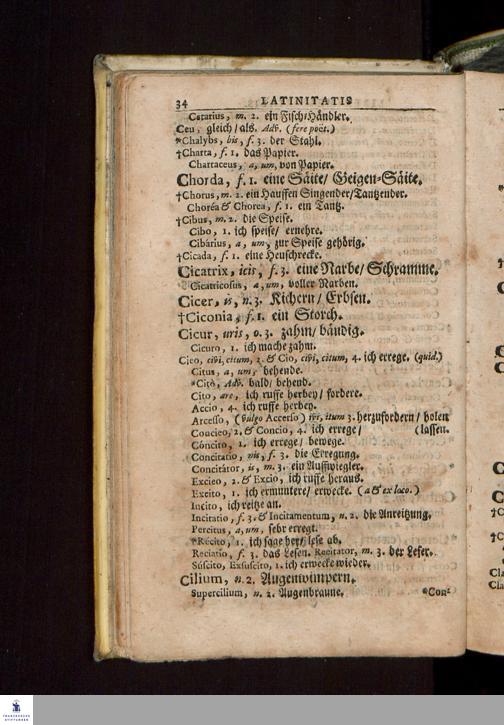 34 LATINITATIS
Cetarius, m. 2. ein Fisch-Händler.
Ceu, gleich/als. Adv. (fere poët.)
*Chalybs, bis, f. 3. der Stahl.
†Charta, f. 1. das Papier.
Chartaceus, a, um, von Papier.
Chorda, f. 1. eine Säite/ Geigen-Säite.
†Chorus, m. 2. ein Hauffen Singender/Tantzender.
Choréa & Chorea, f. 1. ein Tantz.
†Cibus, m. 2. die Speise.
Cibo, 1. ich speise/ ernehre.
Cibárius, a, um, zur Speise gehörig.
†Cicada, f. 1. eine Heuschrecke.
Cicatrix, icis, f. 3. eine Narbe/ Schramme.
Cicatricosus, a, um, voller Narben.
Cicer, is, n. 3. Kichern/ Erbsen.
†Ciconia, f. 1. ein Storch.
Cicur, uris, o. 3. zahm/ bändig.
Cicuro, 1. ich mache zahm.
Cieo, civi, citum, 2. & Cio, civi, citum, 4. ich errege. (quid.)
Citus, a, um, behende.
*Citò, Adv. bald/ behend.
Cito, are, ich ruffe herbey/ fordere.
Accio, 4. ich ruffe herbey.
Arcesso, (vulgo Accerso) ivi, itum 3. herzufordern/ holen
Concieo, 2. & Concio, 4. ich errege/ (lassen.
Cóncito, 1. ich errege/ bewege.
Concitatio, nis, f. 3. die Erregung.
Concitátor, is, m. 3. ein Auffwiegler.
Excieo, 2. & Excio, ich ruffe heraus.
Excito, 1. ich ermuntere/ erwecke. (a & ex loco.)
Incito, ich reitze an.
Incitatio, f. 3. & Incitamentum, n. 2. die Anreitzung.
Percitus, a, um, sehr erregt.
*Récito, 1. ich sage her/ lese ab.
Recitatio, f. 3. das Lesen. Recitator, m. 3. der Leser.
Súscito, Exsuscito, 1. ich erwecke wieder.
Cilium, n. 2. Augenwimpern.
Supercilium, n. 2. Augenbraune. *Con-
FRANCKESCHE
STIFTUNGEN